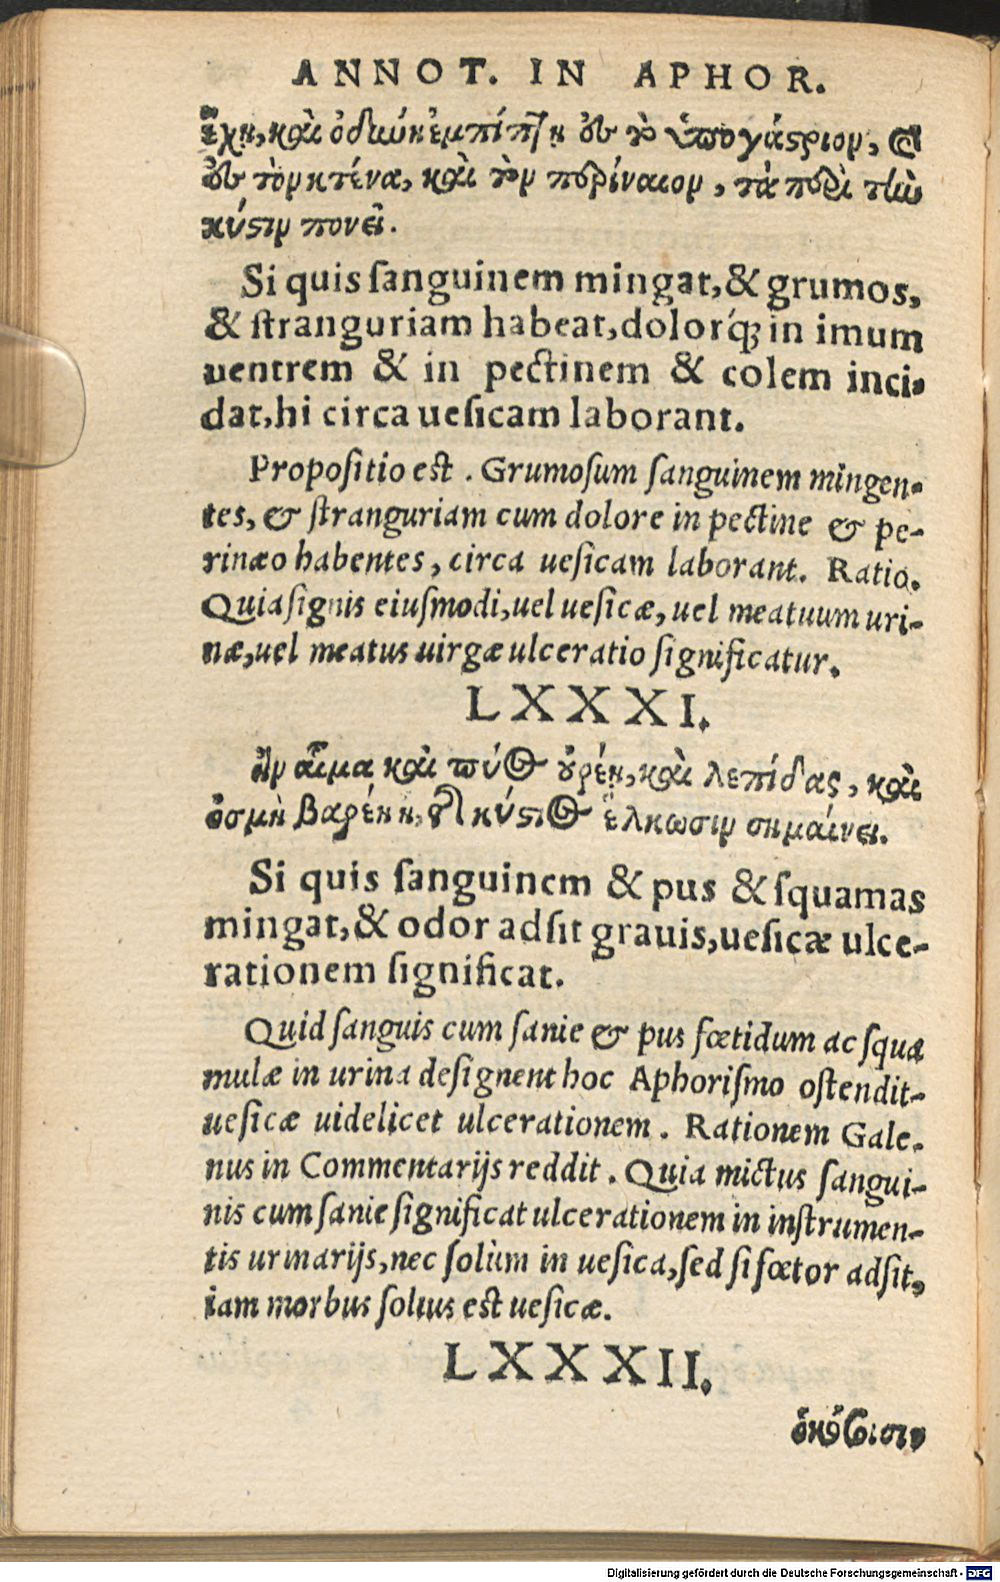 ANNOT. IN APHOR.
ἔχῃ, καὶ ὀδύνη ἐμπίπτῃ εἰς τὸ ὑπογάστριον, καὶ
εἰς τὸν κτένα, καὶ τὸν περίναιον, τὰ περὶ τὴν
κύστιν πονεῖ.
Si quis ſanguinem mingat, & grumos,
& ſtranguriam habeat, dolorq́; in imum
uentrem & in pectinem & colem inci-
dat, hi circa ueſicam laborant.
Propoſitio est. Grumoſum ſanguinem mingen-
tes, & ſtranguriam cum dolore in pectine & pe-
rinæo habentes, circa ueſicam laborant. Ratio.
Quia ſignis eiuſmodi, uel ueſicæ, uel meatuum uri-
næ, uel meatus uirgæ ulceratio ſignificatur.
LXXXI.
ἢν αἷμα καὶ πύος οὐρέῃ, καὶ λεπίδας, καὶ
ὀσμὴ βαρέη ᾖ, τῆς κύστιος ἕλκωσιν σημαίνει.
Si quis ſanguinem & pus & ſquamas
mingat, & odor adſit grauis, ueſicæ ulce-
rationem ſignificat.
Quid ſanguis cum ſanie & pus fœtidum ac ſqua
mulæ in urina deſignent hoc Aphoriſmo oſtendit-
ueſicæ uidelicet ulcerationem. Rationem Gale-
nus in Commentarijs reddit. Quia mictus ſangui-
nis cum ſanie ſignificat ulcerationem in inſtrumen-
tis urinarijs, nec ſolùm in ueſica, ſed ſi fœtor adſit,
iam morbus ſolius est ueſicæ.
LXXXII.
ὁκόσοισιν
Digitalisierung gefördert durch die Deutsche Forschungsgemeinschaft - DFG